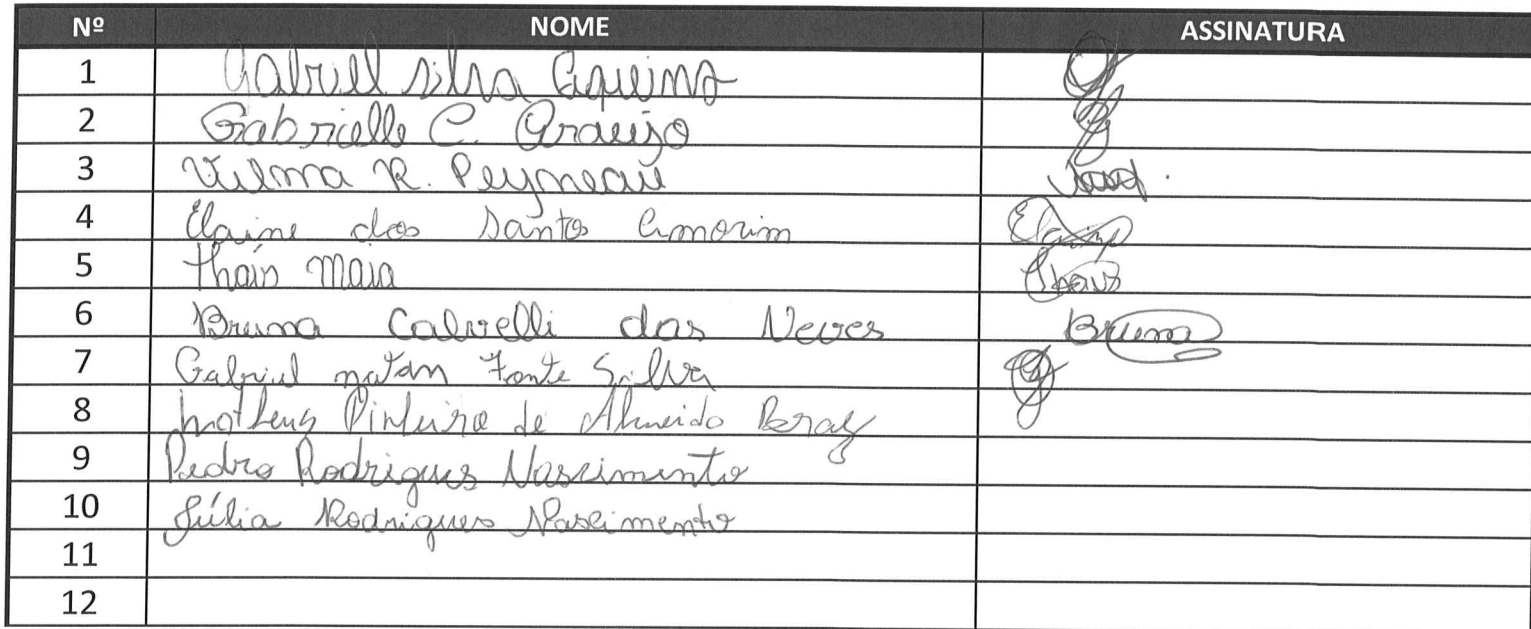 Nº NOME ASSINATURA
1 Gabriell Silva
2 Gabrielle C. Araujo
3 Vilma R. Peyneau
4 Elaine dos Santos Amorim Elaine
5 Thaís Maia Thais
6 Bruna Calvelli das Neves Bruna
7 Gabriel natan Fonte Silva
8 Matheus Pinheiro de Almeida Beraz
9 Pedro Rodrigues Nascimento
10 Júlia Rodrigues Nascimento
11
12